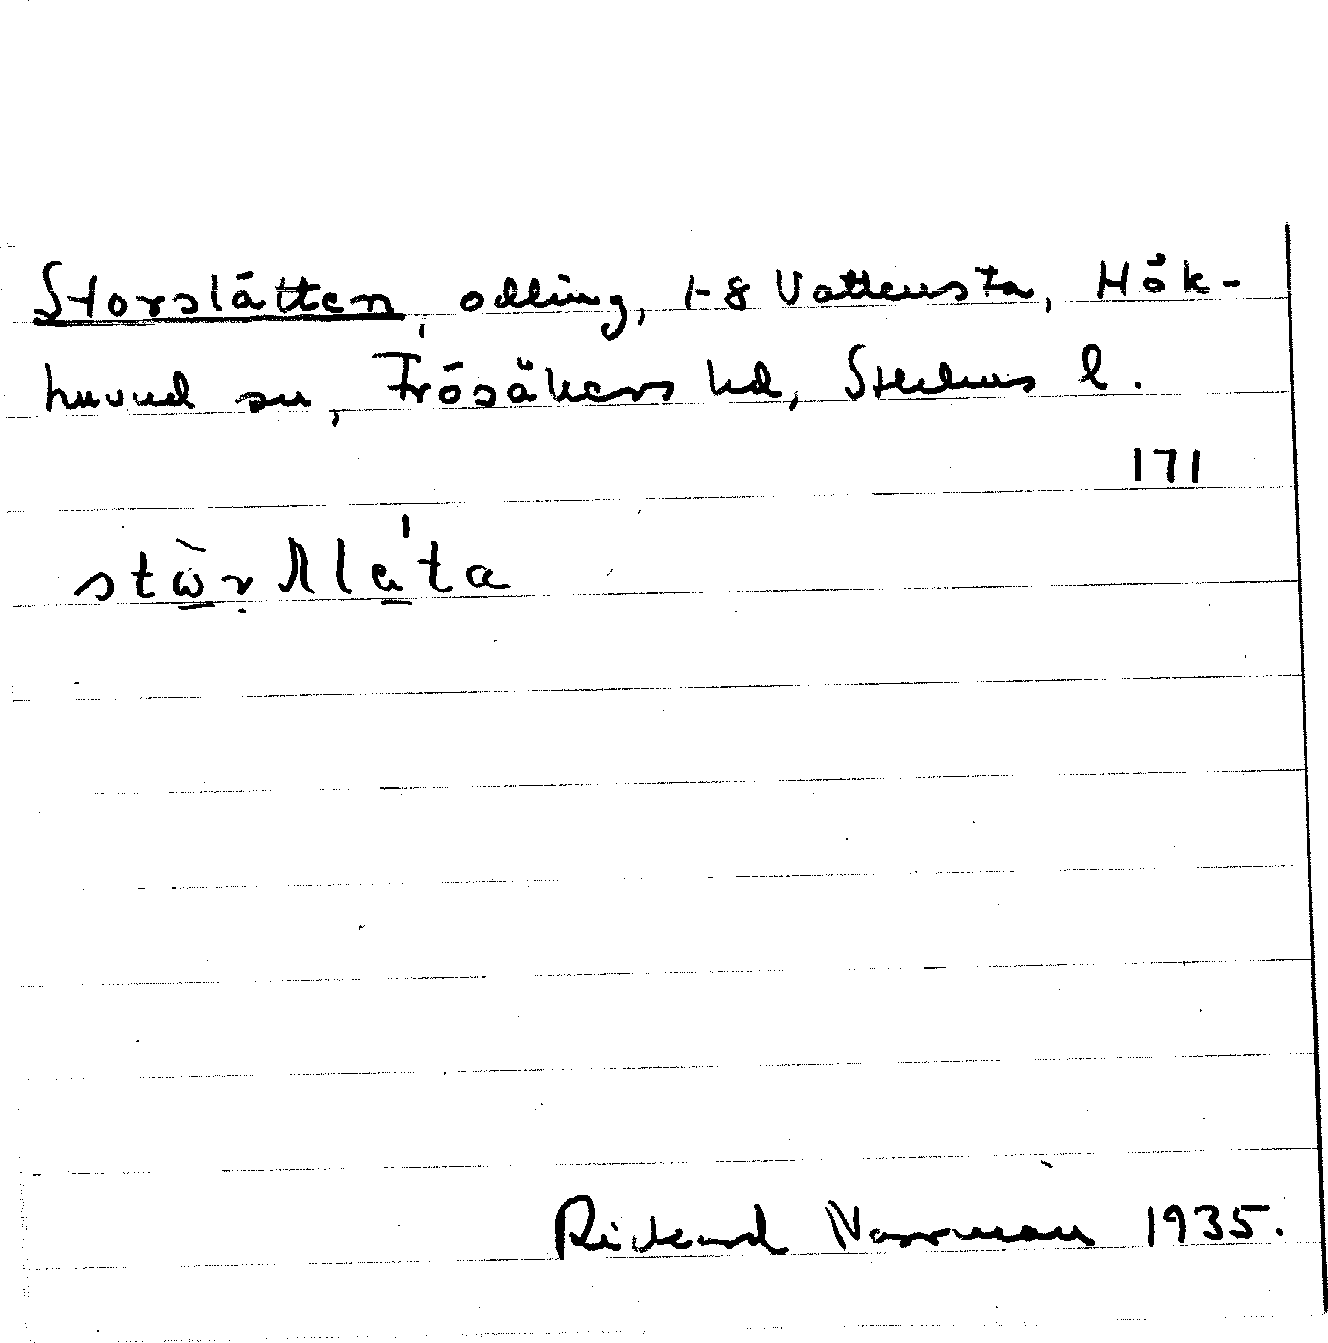 Storslätten, odling, 1-8 Vattensta, Hök-
huvud sn, Frösåkers hd, Sthlms l.
171
Rickard Norrman 1935.